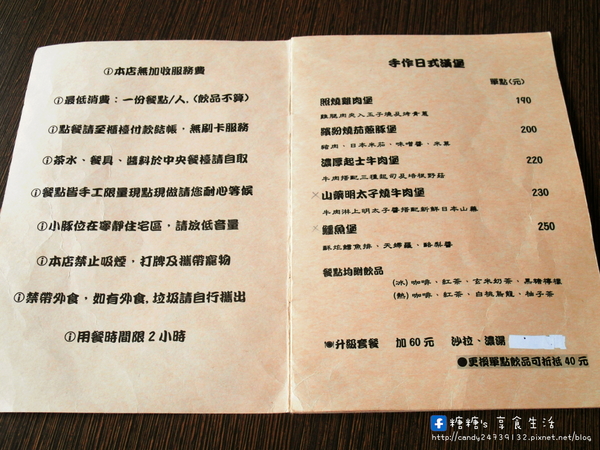 ①本店無加收服務費
①最低消費：一份餐點/人.(飲品不算)
①點餐請至櫃檯付款結帳，無刷卡服務
①茶水、餐具、醬料於中央餐檯請自取
①餐點皆手工限量現點現做請您耐心等候
①小豚位在寧靜住宅區，請放低音量
①本店禁止吸煙，打牌及攜帶寵物
①禁帶外食，如有外食,垃圾請自行攜出
①用餐時間限2小時
手作日式漢堡
單點(元)
照燒雞肉堡 190
雞腿肉夾入玉子燒及烤青蔥
繽紛燒茄蔥豚堡 200
豬肉、日本米茄、味噌醬、米菓
濃厚起士牛肉堡 220
牛肉搭配三種起司及培根野菇
×山藥明太子燒牛肉堡 230
牛肉淋上明太子醬搭配新鮮日本山藥
×鱈魚堡 250
酥炸鱈魚排、天婦羅、酪梨醬
餐點均附飲品
(冰)咖啡、紅茶、玄米奶茶、黑糖檸檬
(熱)咖啡、紅茶、白桃烏龍、柚子茶
升級套餐 加60元 沙拉、濃湯
●更換單點飲品可折抵40元
糖糖's 享食生活
http://candy24739132.pixnet.net/blog